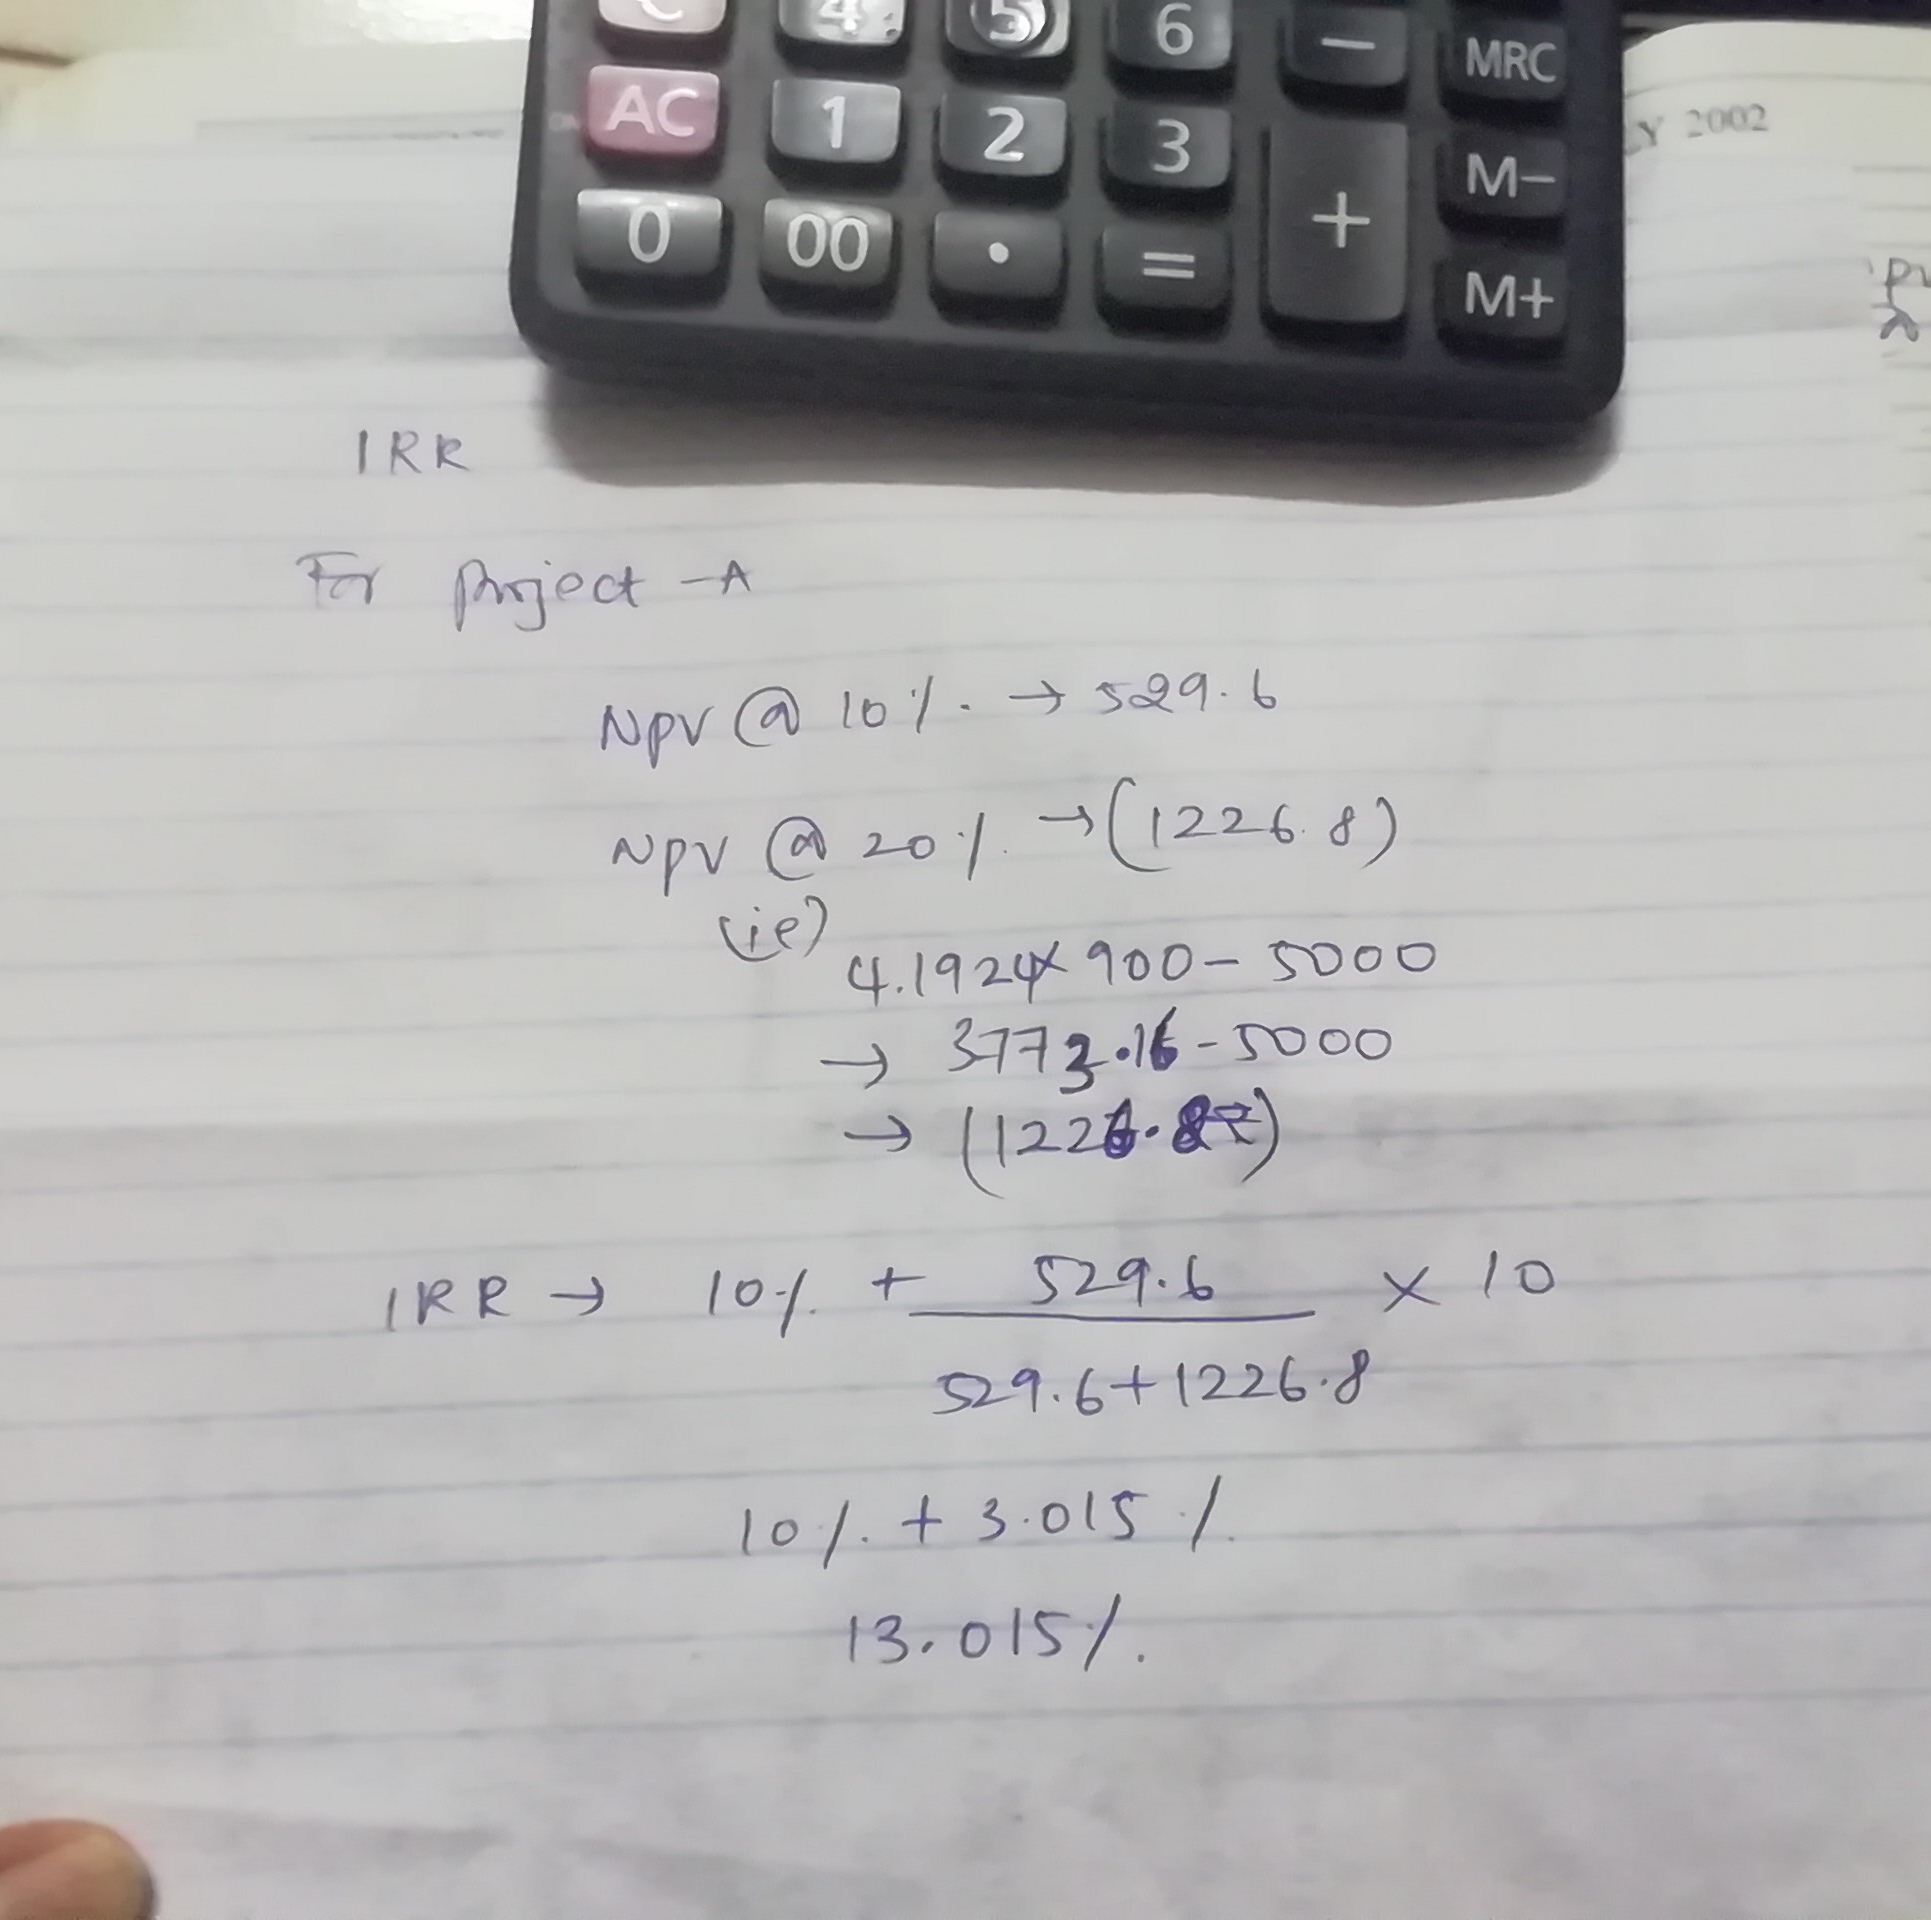 C 4 5 6 − MRC
AC 1 2 3 M−
0 00 . = + M+
Y 2002
IRR
For Project -A
NPV @ 10%. → 529.6
NPV @ 20%. → (1226.8)
(ie)
4.1924 x 900 - 5000
→ 3773.16 - 5000
IRR → 10% + 529.6 x 10
529.6+1226.8
10%. + 3.015 %.
13.015%.